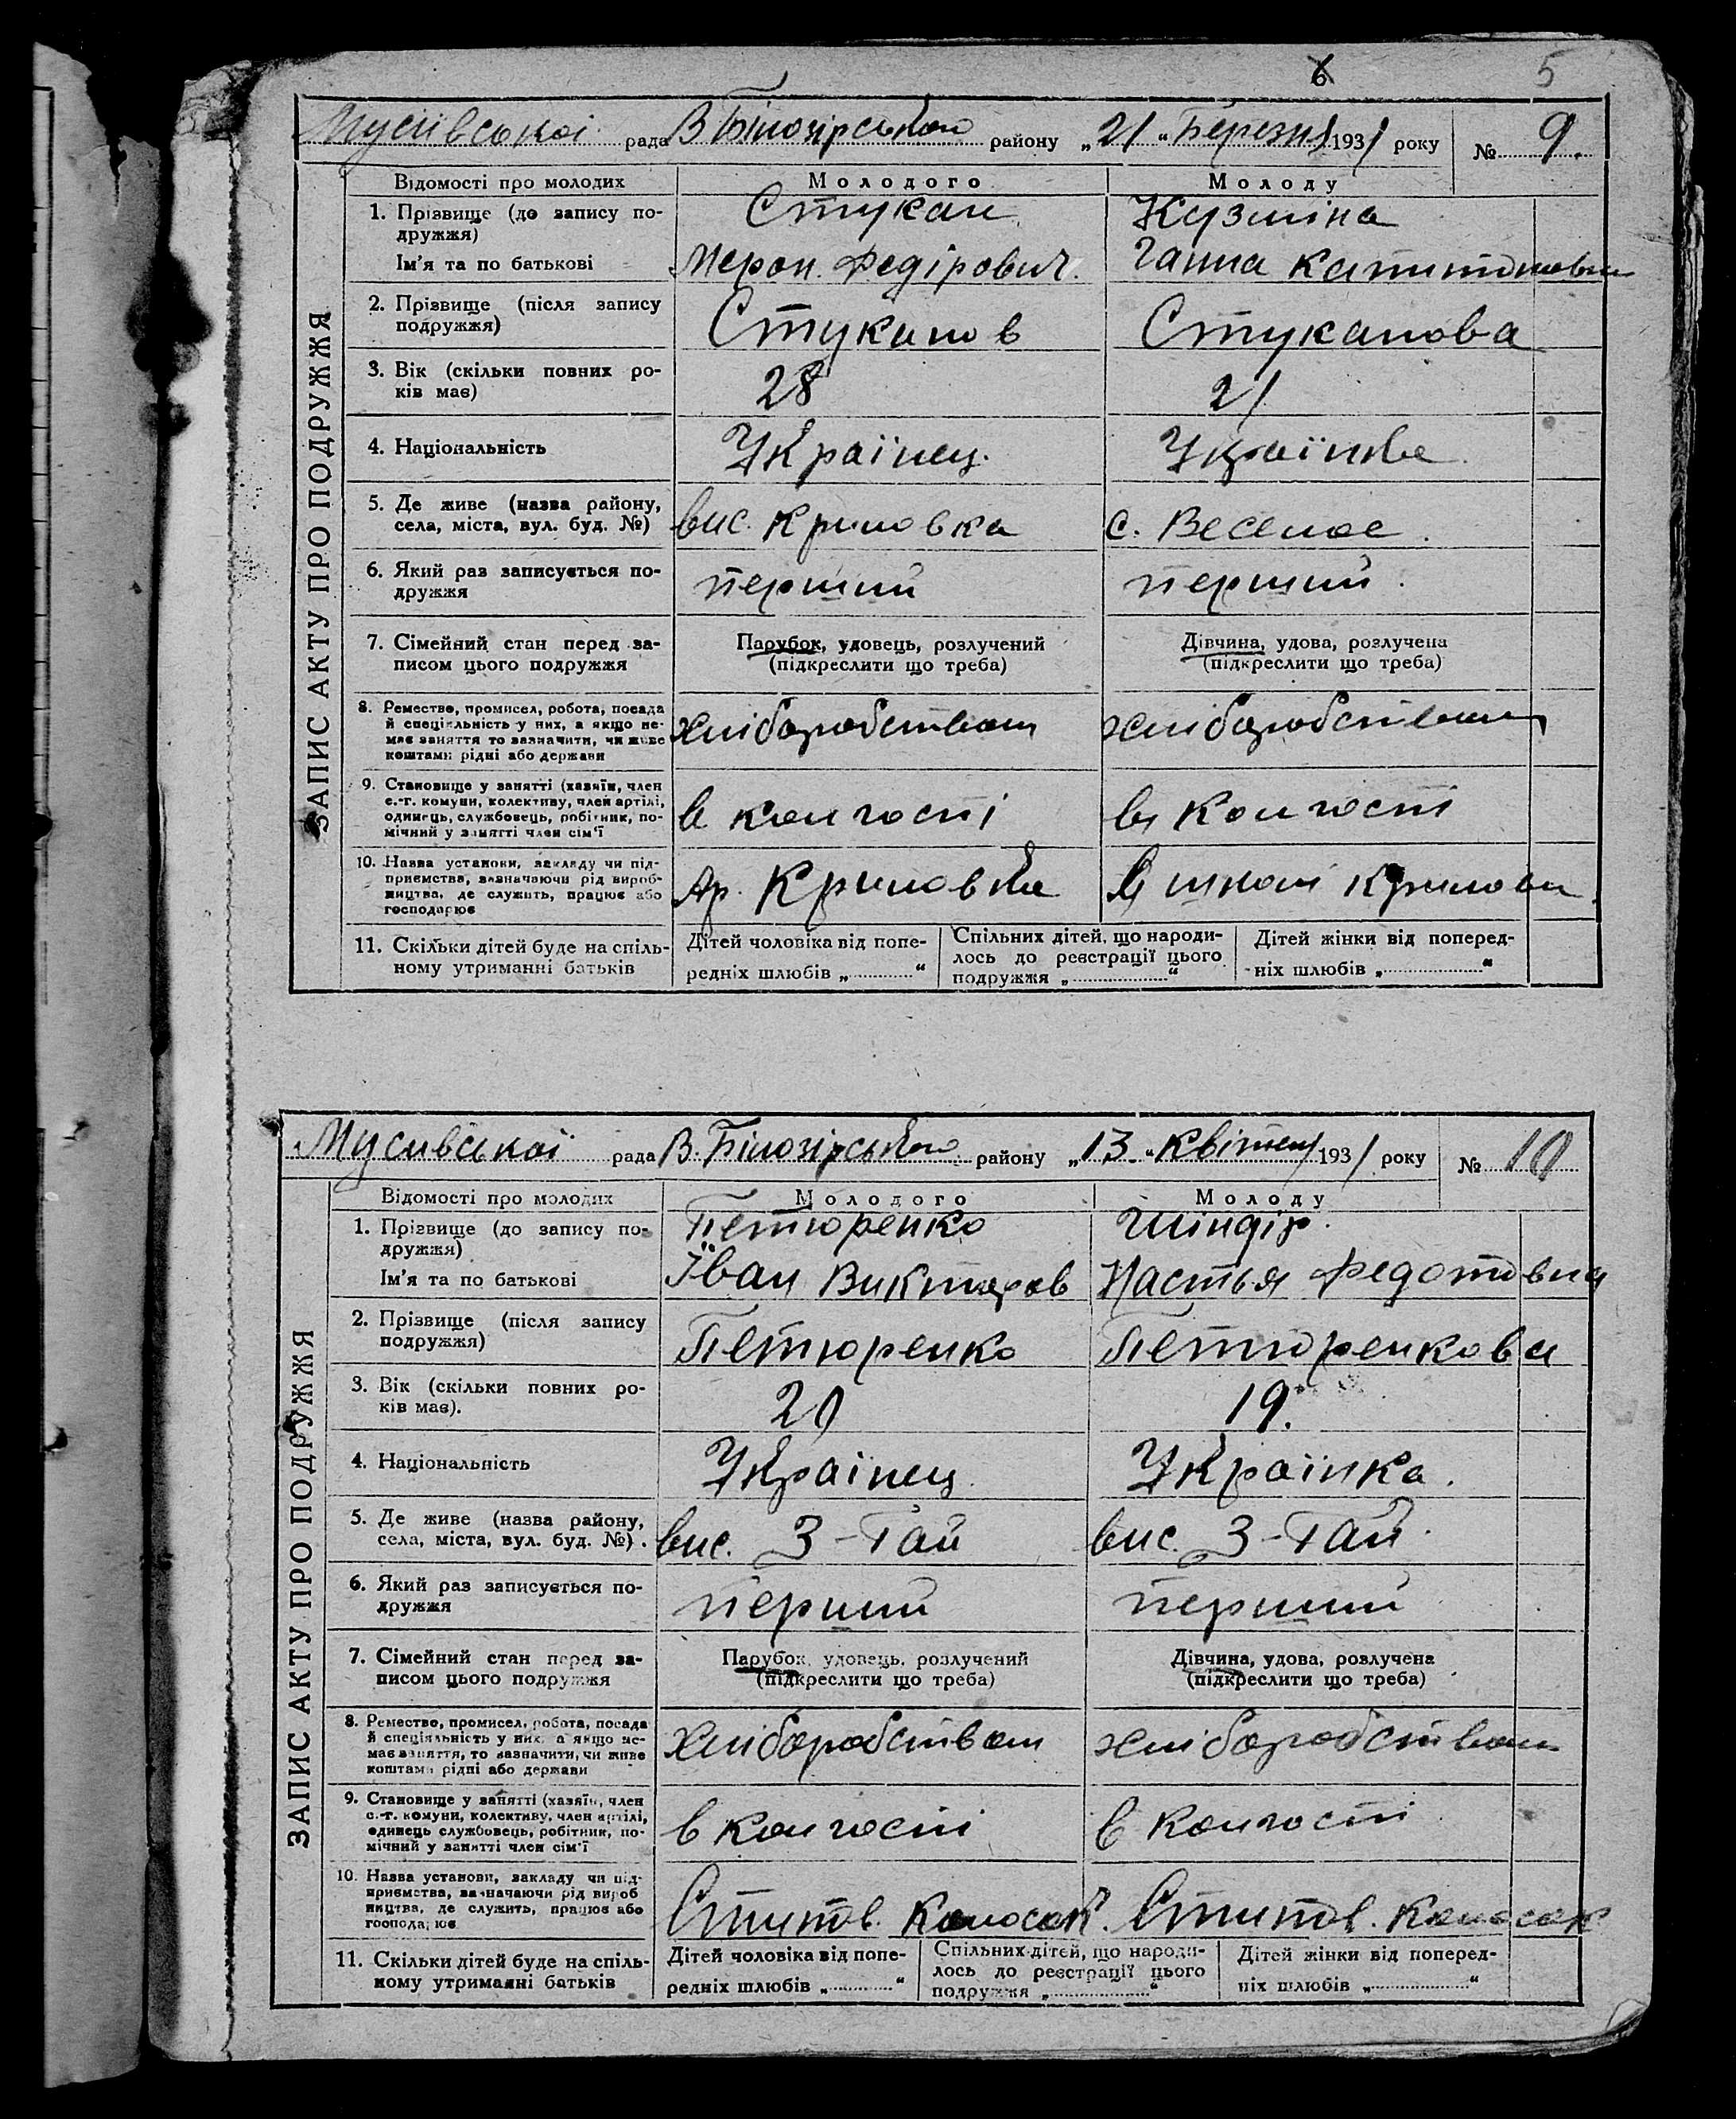 6 5
Мусіївської рада В Білозірського району „21“ Березня 1931 року № 9.
Відомості про молодих Молодого Молоду
1. Прізвище (до запису по- Стукан Кузміна
дружжя)
Ім'я та по батькові Мерон. Федірович. Ганна
2. Прізвище (після запису Стуканов Стуканова
подружжя)
3. Вік (скільки повних ро- 28 21
ків має)
4. Національність Українец. Українка
5. Де живе (назва району, вис. Криловка с. Веселое.
села, міста, вул. буд. №)
6. Який раз записується по- перший перший.
дружжя
7. Сімейний стан перед за- Парубок, удовець, розлучений Дівчина, удова, розлучена
писом цього подружжя (підкреслити що треба) (підкреслити що треба)
8. Ремество, промисел, робота, посада хліборобством хліборобством
й спеціяльність у них, а якщо не-
має заняття то зазначити, чи живе
коштами рідні або держави
9. Становище у занятті (хазяїн, член в колгоспі в колгоспі
с.-г. комуни, колективу, член артілі,
одинець, службовець, робітник, по-
мічний у занятті член сім'ї
10. Назва установи, закладу чи під- Ар. Криловка
приємства, зазначаючи рід вироб-
ництва, де служить, працює або
господарює
11. Скільки дітей буде на спіль- Дітей чоловіка від попе- Спільних дітей, що народи- Дітей жінки від поперед-
ному утриманні батьків редніх шлюбів „ “ лось до реєстрації цього ніх шлюбів „ “
подружжя „ “
ЗАПИС АКТУ ПРО ПОДРУЖЖЯ
Мусивської рада В. Білозірського району „13“ Квітня 1931 року № 10
Відомості про молодих Молодого Молоду
1. Прізвище (до запису по- Петюренко Шіндір.
дружжя)
Ім'я та по батькові Їван Викторов Настья Федотовна
2. Прізвище (після запису Петюренко Петюренкова
подружжя)
3. Вік (скільки повних ро- 20 19.
ків має).
4. Національність Українец Українка.
5. Де живе (назва району, вис. 3-Гай вис. 3-Гай.
села, міста, вул. буд. №).
6. Який раз записується по- перший перший
дружжя
7. Сімейний стан перед за- Парубок, удовець, розлучений Дівчина, удова, розлучена
писом цього подружжя (підкреслити що треба) (підкреслити що треба)
8. Ремество, промисел, робота, посада хліборобством хліборобством
й спеціяльність у них, а якщо не-
має заняття, то зазначити, чи живе
коштами рідні або держави
9. Становище у занятті (хазяїн, член в колгоспі в колгоспі
с.-г. комуни, колективу, член артілі,
одинець службовець, робітник, по-
мічний у занятті член сім'ї
10. Назва установи, закладу чи під- Степов. Колосок. Степов. Колосок
приємства, зазначаючи рід вироб
ництва, де служить, працює або
господарює
11. Скільки дітей буде на спіль- Дітей чоловіка від попе- Спільних дітей, що народи- Дітей жінки від поперед-
ному утриманні батьків редніх шлюбів „ “ лось до реєстрації цього ніх шлюбів „ “
подружжя „ “
ЗАПИС АКТУ ПРО ПОДРУЖЖЯ